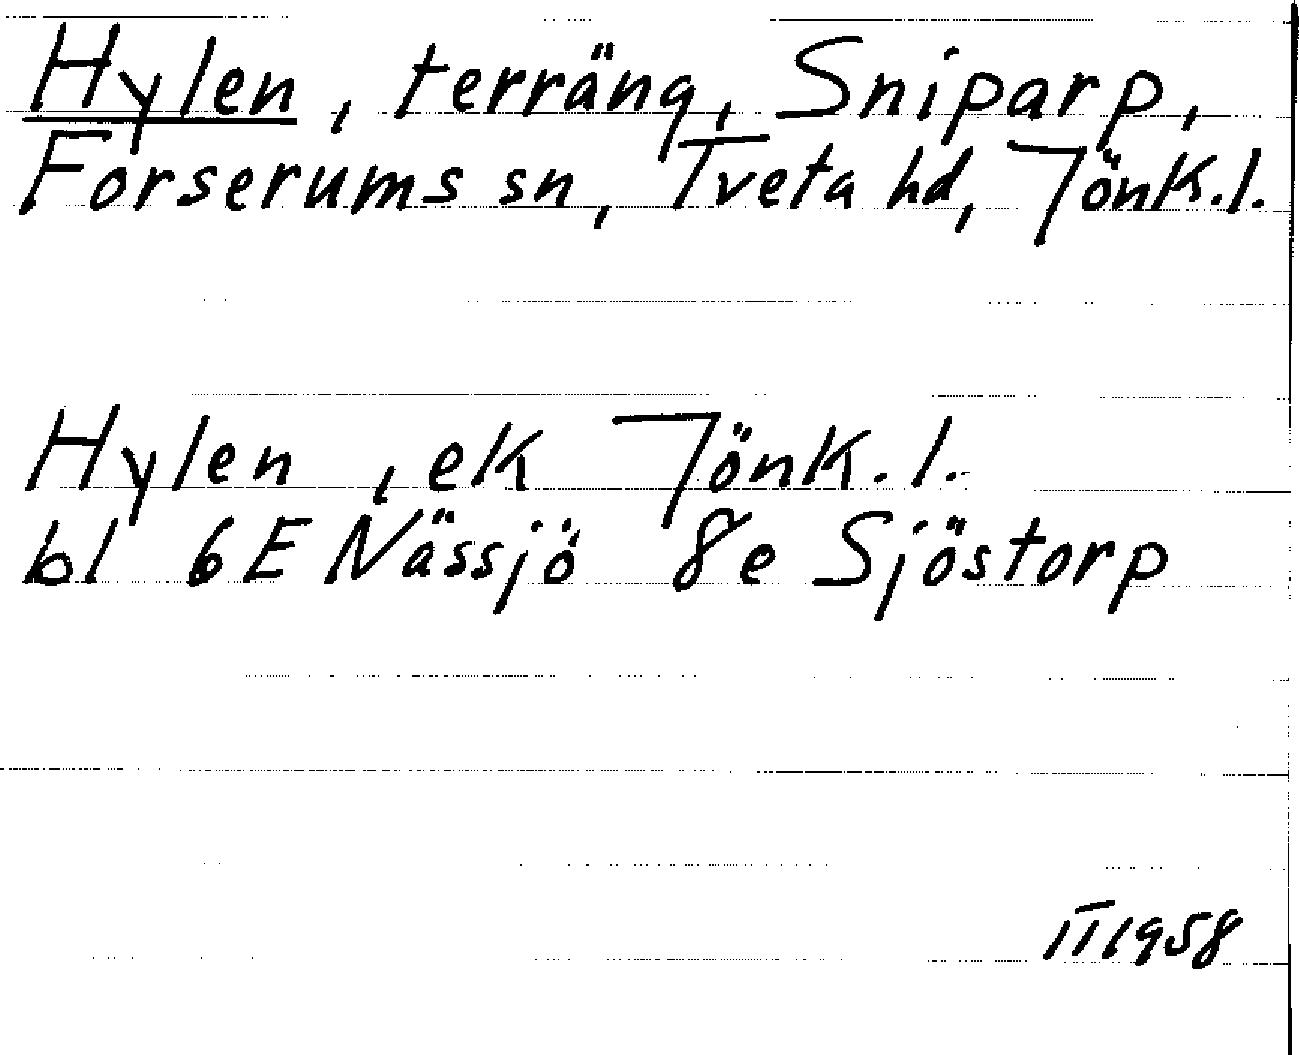 Hylen, terräng, Sniparp,
Forserums sn, Tveta hd, Jönk.l.
Hylen, ek Jönk.l.
bl 6E Nässjö 8e Sjöstorp
II 1958